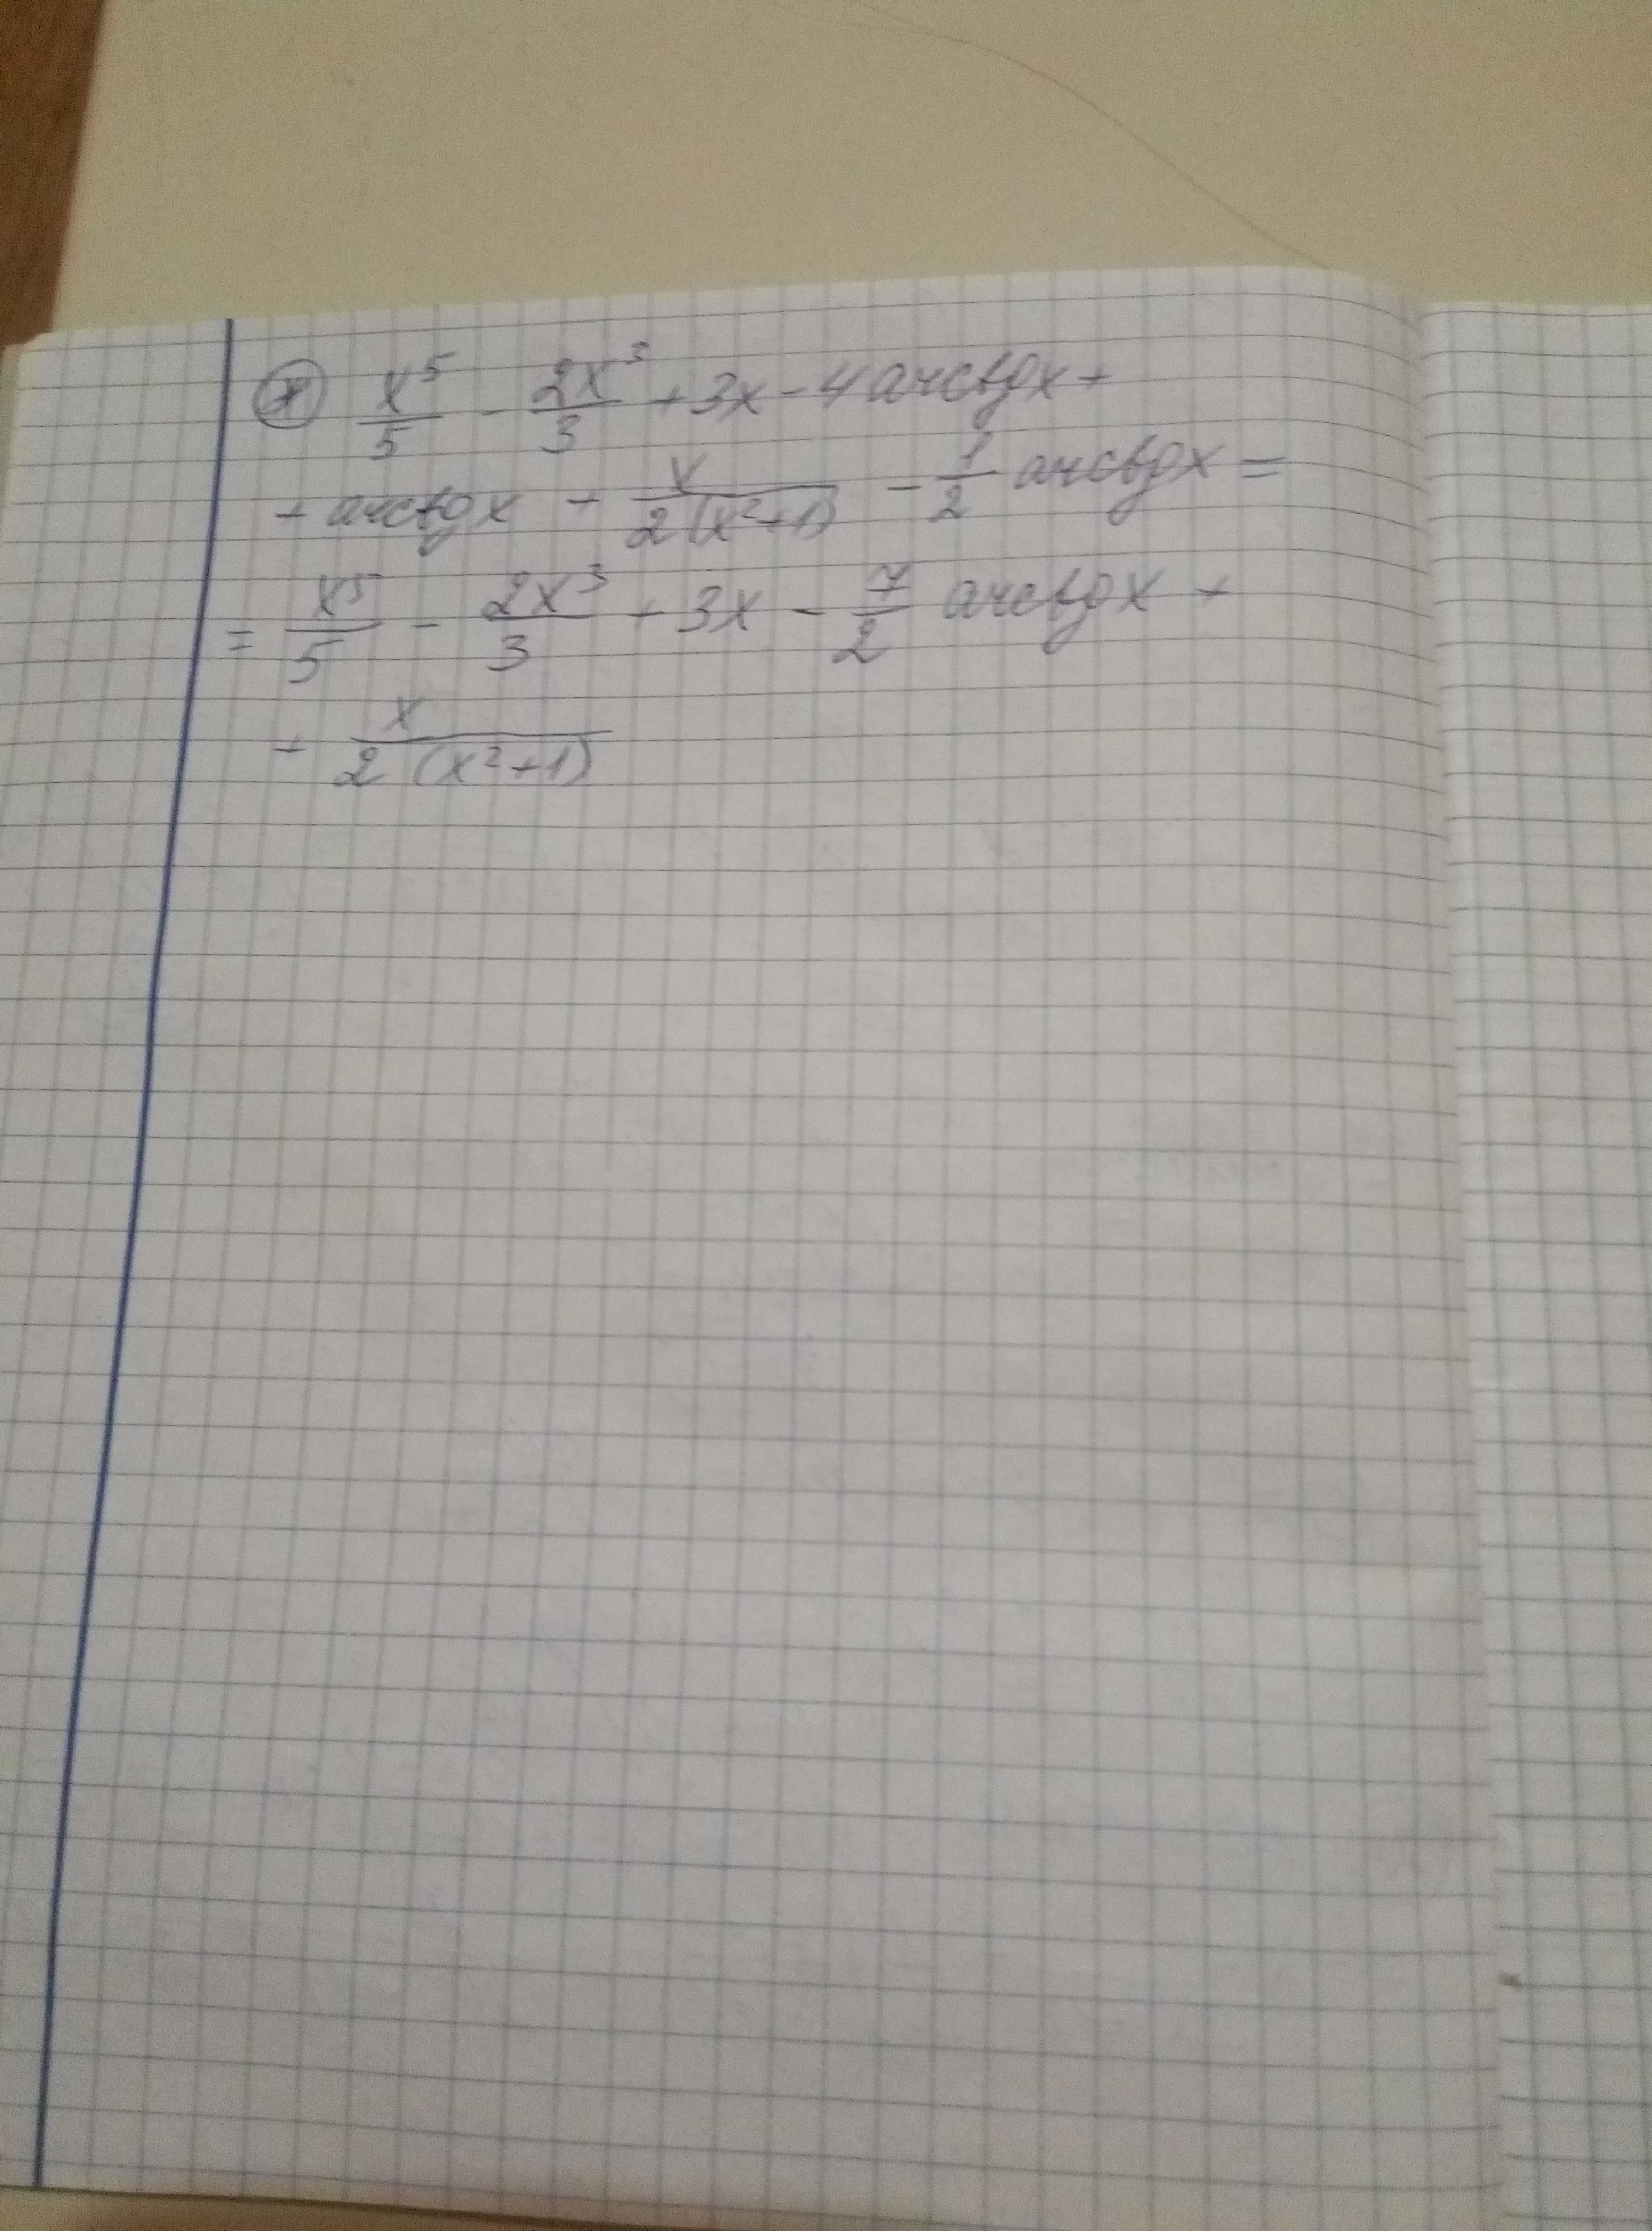 (*) x^5/5 - 2x^3/3 + 3x - 4 arctgx +
+ arctgx + x/(2(x^2+1)) - 1/2 arctgx =
= x^5/5 - 2x^3/3 + 3x - 7/2 arctgx +
+ x/(2(x^2+1))